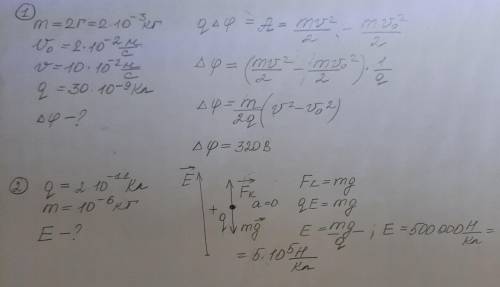 ① m = 2г = 2·10⁻³ кг
v₀ = 2·10⁻² м/с
v = 10·10⁻² м/с
q = 30·10⁻⁹ Кл
Δφ – ?
qΔφ = A = mv²/2 - mv₀²/2
Δφ = (mv²/2 - mv₀²/2)·1/q
Δφ = m/2q (v² - v₀²)
Δφ = 320 В
② q = 2·10⁻¹¹ Кл
m = 10⁻⁶ кг
E – ?
E
+ q
Fк
a=0
mg
Fк = mg
qE = mg
E = mg/q ; E = 500 000 Н/Кл =
= 5·10⁵ Н/Кл